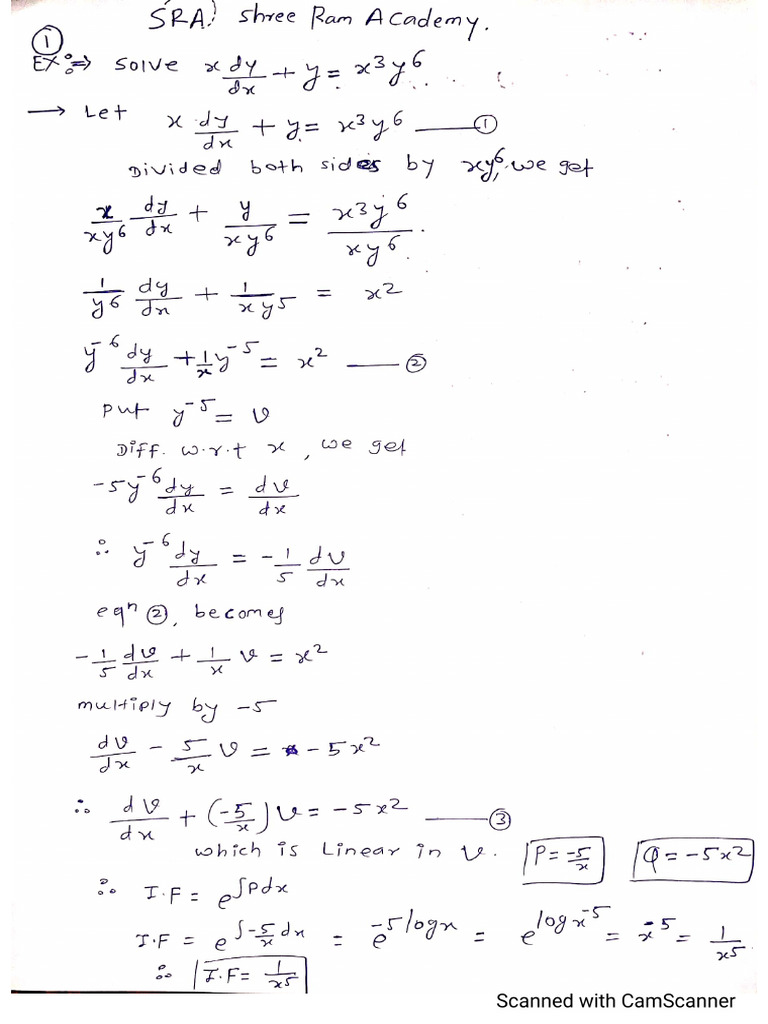 SRA! Shree Ram Academy.
①
Ex:⇒ solve x dy/dx + y = x³y⁶
→ Let x dy/dx + y = x³y⁶ —— ①
Divided both sides by xy⁶, we get
x/xy⁶ dy/dx + y/xy⁶ = x³y⁶/xy⁶.
1/y⁶ dy/dx + 1/xy⁵ = x²
y⁻⁶ dy/dx + 1/x y⁻⁵ = x² —— ②
put y⁻⁵ = v
Diff. w.r.t x, we get
-5y⁻⁶ dy/dx = dv/dx
∴ y⁻⁶ dy/dx = -1/5 dv/dx
eqⁿ ②, becomes
-1/5 dv/dx + 1/x v = x²
multiply by -5
dv/dx - 5/x v = -5x²
∴ dv/dx + (-5/x) v = -5x² —— ③
which is Linear in v. P = -5/x Q = -5x²
∴ I.F = e^∫Pdx
I.F = e^∫-5/x dx = e^-5logx = e^logx⁻⁵ = x⁻⁵ = 1/x⁵
∴ I.F = 1/x⁵
Scanned with CamScanner